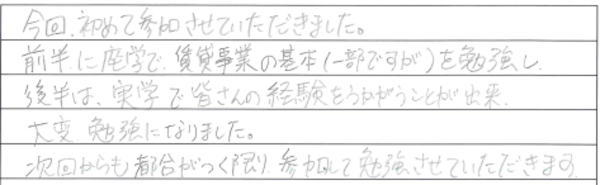 今回、初めて参加させていただきました。
前半に座学で、賃貸事業の基本(一部ですが)を勉強し、
後半は、実学で皆さんの経験をうかがうことが出来、
大変、勉強になりました。
次回からも都合がつく限り、参加して勉強させていただきます。